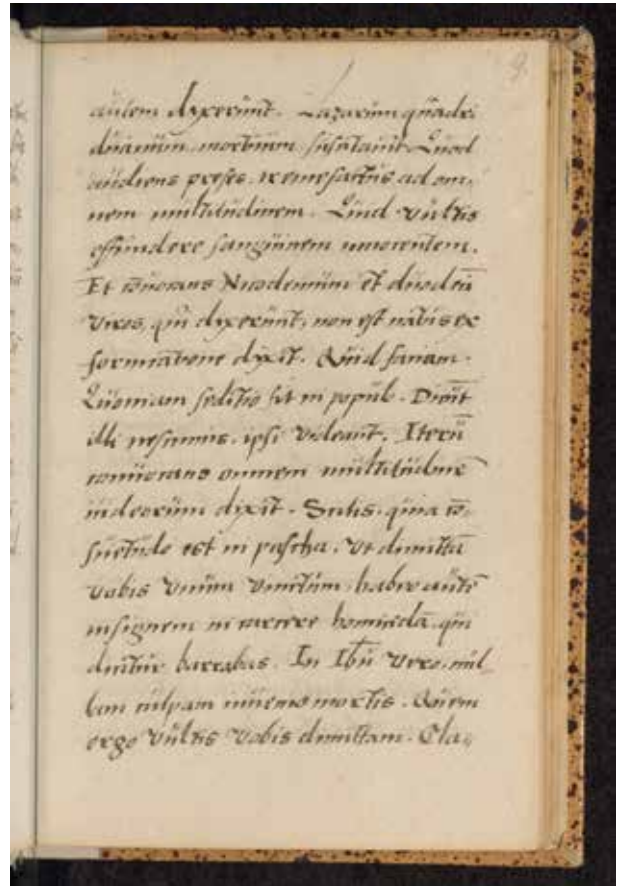 9.
autem dyxerunt. Lazarum quadri
duanum mortuum susitauit. Quod
audiens preses. tremefactus ad om,
nem multitudinem. Quid vultis
effundere sanguinem innocentem.
Et conuocans Nicodemum et duodecim
viros, qui dyxerunt, non est natus ex
fornicatione dyxit. Quid faciam.
Quoniam seditio fit in populo. Dicunt
illi nescimus. ipsi videant. Iterū
conuocans omnem multitudinē
iudeorum dyxit. Scitis. quia cō,
suetudo est in pascha. vt dimittā
vobis vnum vinctum. habeo autē
insignem in carcere homicidā. qui
dicitur barrabas. In Ihū vero. nul
lam culpam inuenio mortis. Quem
ergo vultis vobis dimittam. Cla,,